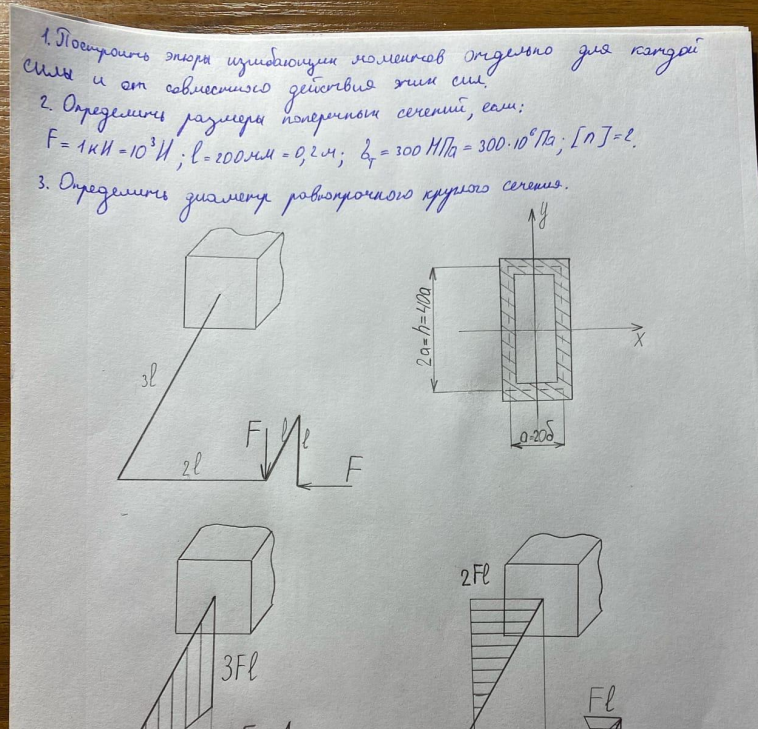 1. Построить эпюры изгибающих моментов отдельно для каждой
силы и от совместного действия этих сил.
2. Определить размеры поперечных сечений, если:
F = 1кН = 10³Н; l = 200мм = 0,2м; δт = 300 МПа = 300·10⁶Па; [n] = 2.
3. Определить диаметр равнопрочного круглого сечения.
y
x
2a=h=40δ
a=20δ
3l
2l
F
l
l
F
3Fl
2Fl
Fl